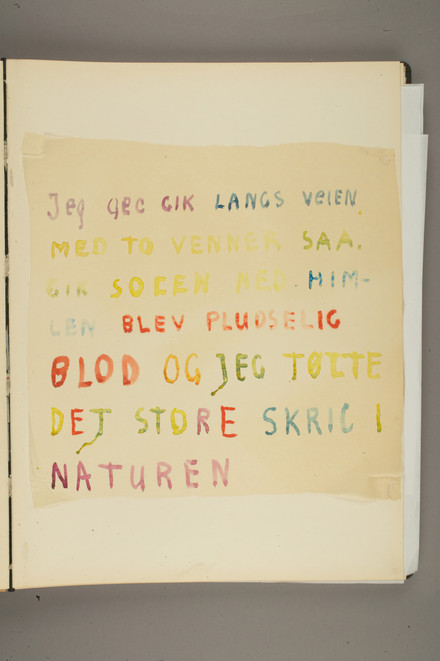 Jeg gec GIK LANGS VEIEN
MED TO VENNER SAA.
GIK SOLEN NED. HIM-
LEN BLEV PLUDSELIG
BLOD OG JEG FØLTE
DET STORE SKRIG I
NATUREN